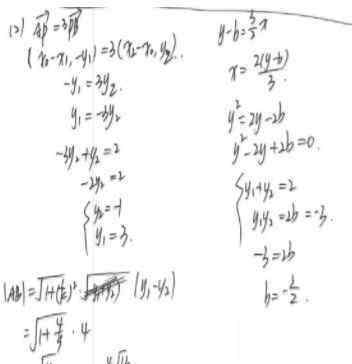 (2) \overrightarrow{AP}=3\overrightarrow{PB}
(x₀-x₁,-y₁)=3(x₂-x₀,y₂).
-y₁=3y₂.
y₁=-3y₂
-3y₂+y₂=2
-2y₂=2
{y₂=-1
y₁=3.
|AB|=√1+(\frac{1}{k})² · |y₁-y₂|
=√1+\frac{4}{9} · 4
y-b=\frac{3}{2}x
x=\frac{2(y-b)}{3}.
y²=2y-2b
y²-2y+2b=0.
{y₁+y₂=2
y₁y₂=2b=-3.
-3=2b
b=-\frac{3}{2}.